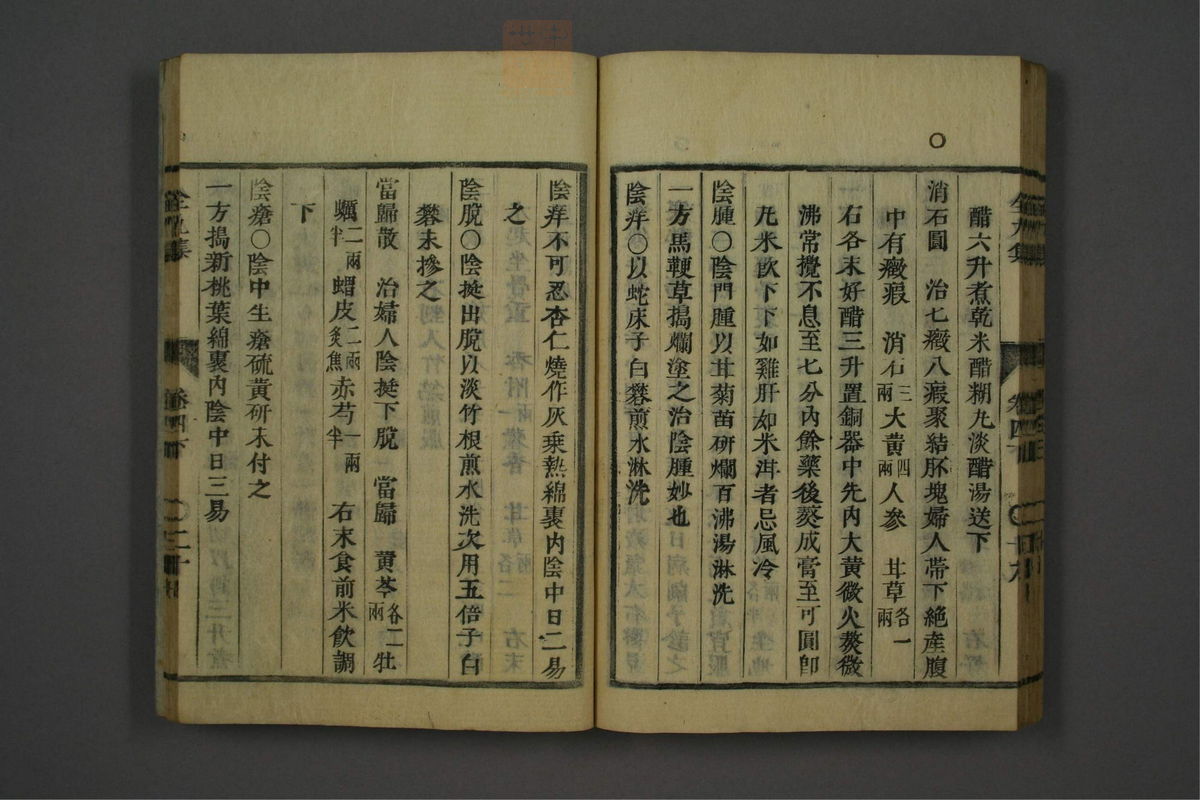 醋六升煮乾米醋糊丸淡醋湯送下
消石圓 治七癥八瘕聚結胚塊婦人帶下絕產腹
中有癥瘕 消石三兩大黃四兩人參 甘草各一兩
右各末好醋三升置銅器中先內大黃微火熬微
沸常攪不息至七分內餘藥後熬成膏至可圓卽
丸米飮下下如雞肝如米泔者忌風冷
陰腫○陰門腫以甘菊苗研爛百沸湯淋洗
一方馬鞭草搗爛塗之治陰腫妙也
陰痒○以蛇床子白礬煎水淋洗
全九集 卷四下 十九
陰痒不可忍杏仁燒作灰乘熱綿裹內陰中日二易
之
陰脫○陰挺出脫以淡竹根煎水洗次用五倍子白
礬末摻之
當歸散 治婦人陰挺下脫 當歸 黃芩各二兩牡
蠣二兩半蝟皮二兩炙焦赤芍一兩半 右末食前米飮調
下
陰瘡○陰中生瘡硫黃研末付之
一方搗新桃葉綿裹內陰中日三易
全九集 卷四下 二十